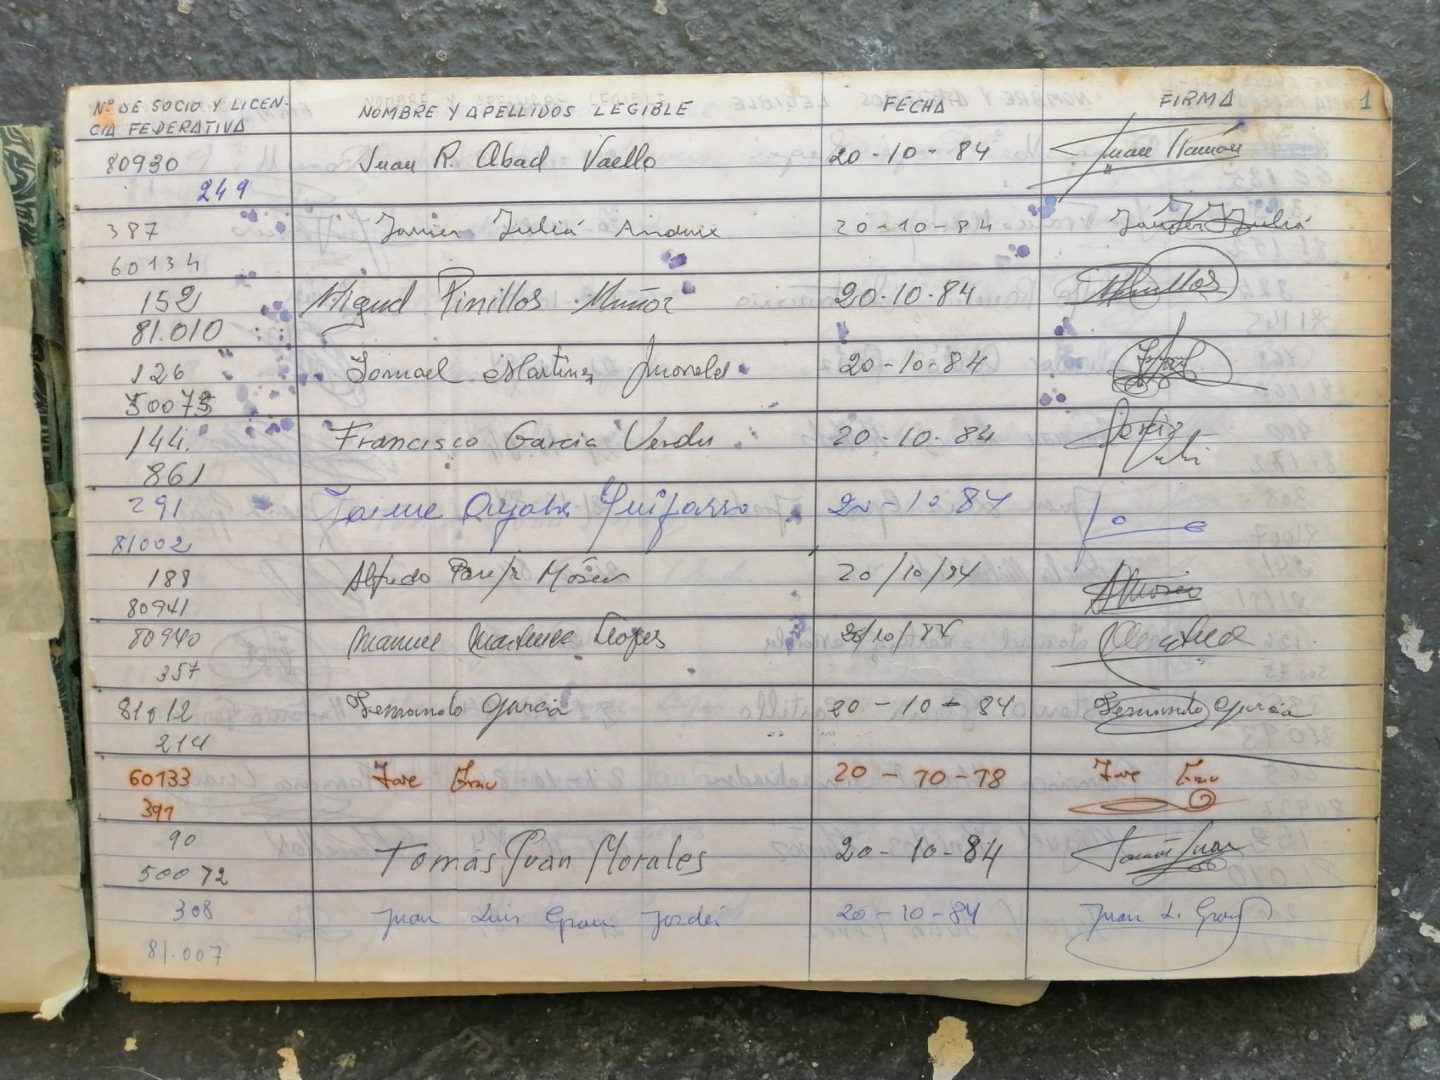 Nº DE SOCIO Y LICEN- NOMBRE Y APELLIDOS LEGIBLE FECHA FIRMA 1
CIA FEDERATIVA
80930 Juan R. Abad Vaello 20-10-84 Juan Ramón
249
387 Javier Juliá 20-10-84 Javier Juliá
60134
152 Miguel Pinillos Muñoz 20-10-84 Pinillos
81.010
126 Ismael Martinez 20-10-84
50073
144. Francisco Garcia Verdu 20-10-84
861
291 Jaime 20-10-84
81002
188 Alfredo 20/10/84
80941
80940 Manuel Martinez Lopes 20/10/84
357
81012 Fernando Garcia 20-10-84 Fernando Garcia
214
60133 Jose Grau 20-10-78 Jose Grau
391
90 Tomás Juan Morales 20-10-84 Tomás Juan
50072
308 Juan Luis Grau Jordá 20-10-84 Juan L. Grau
81.007